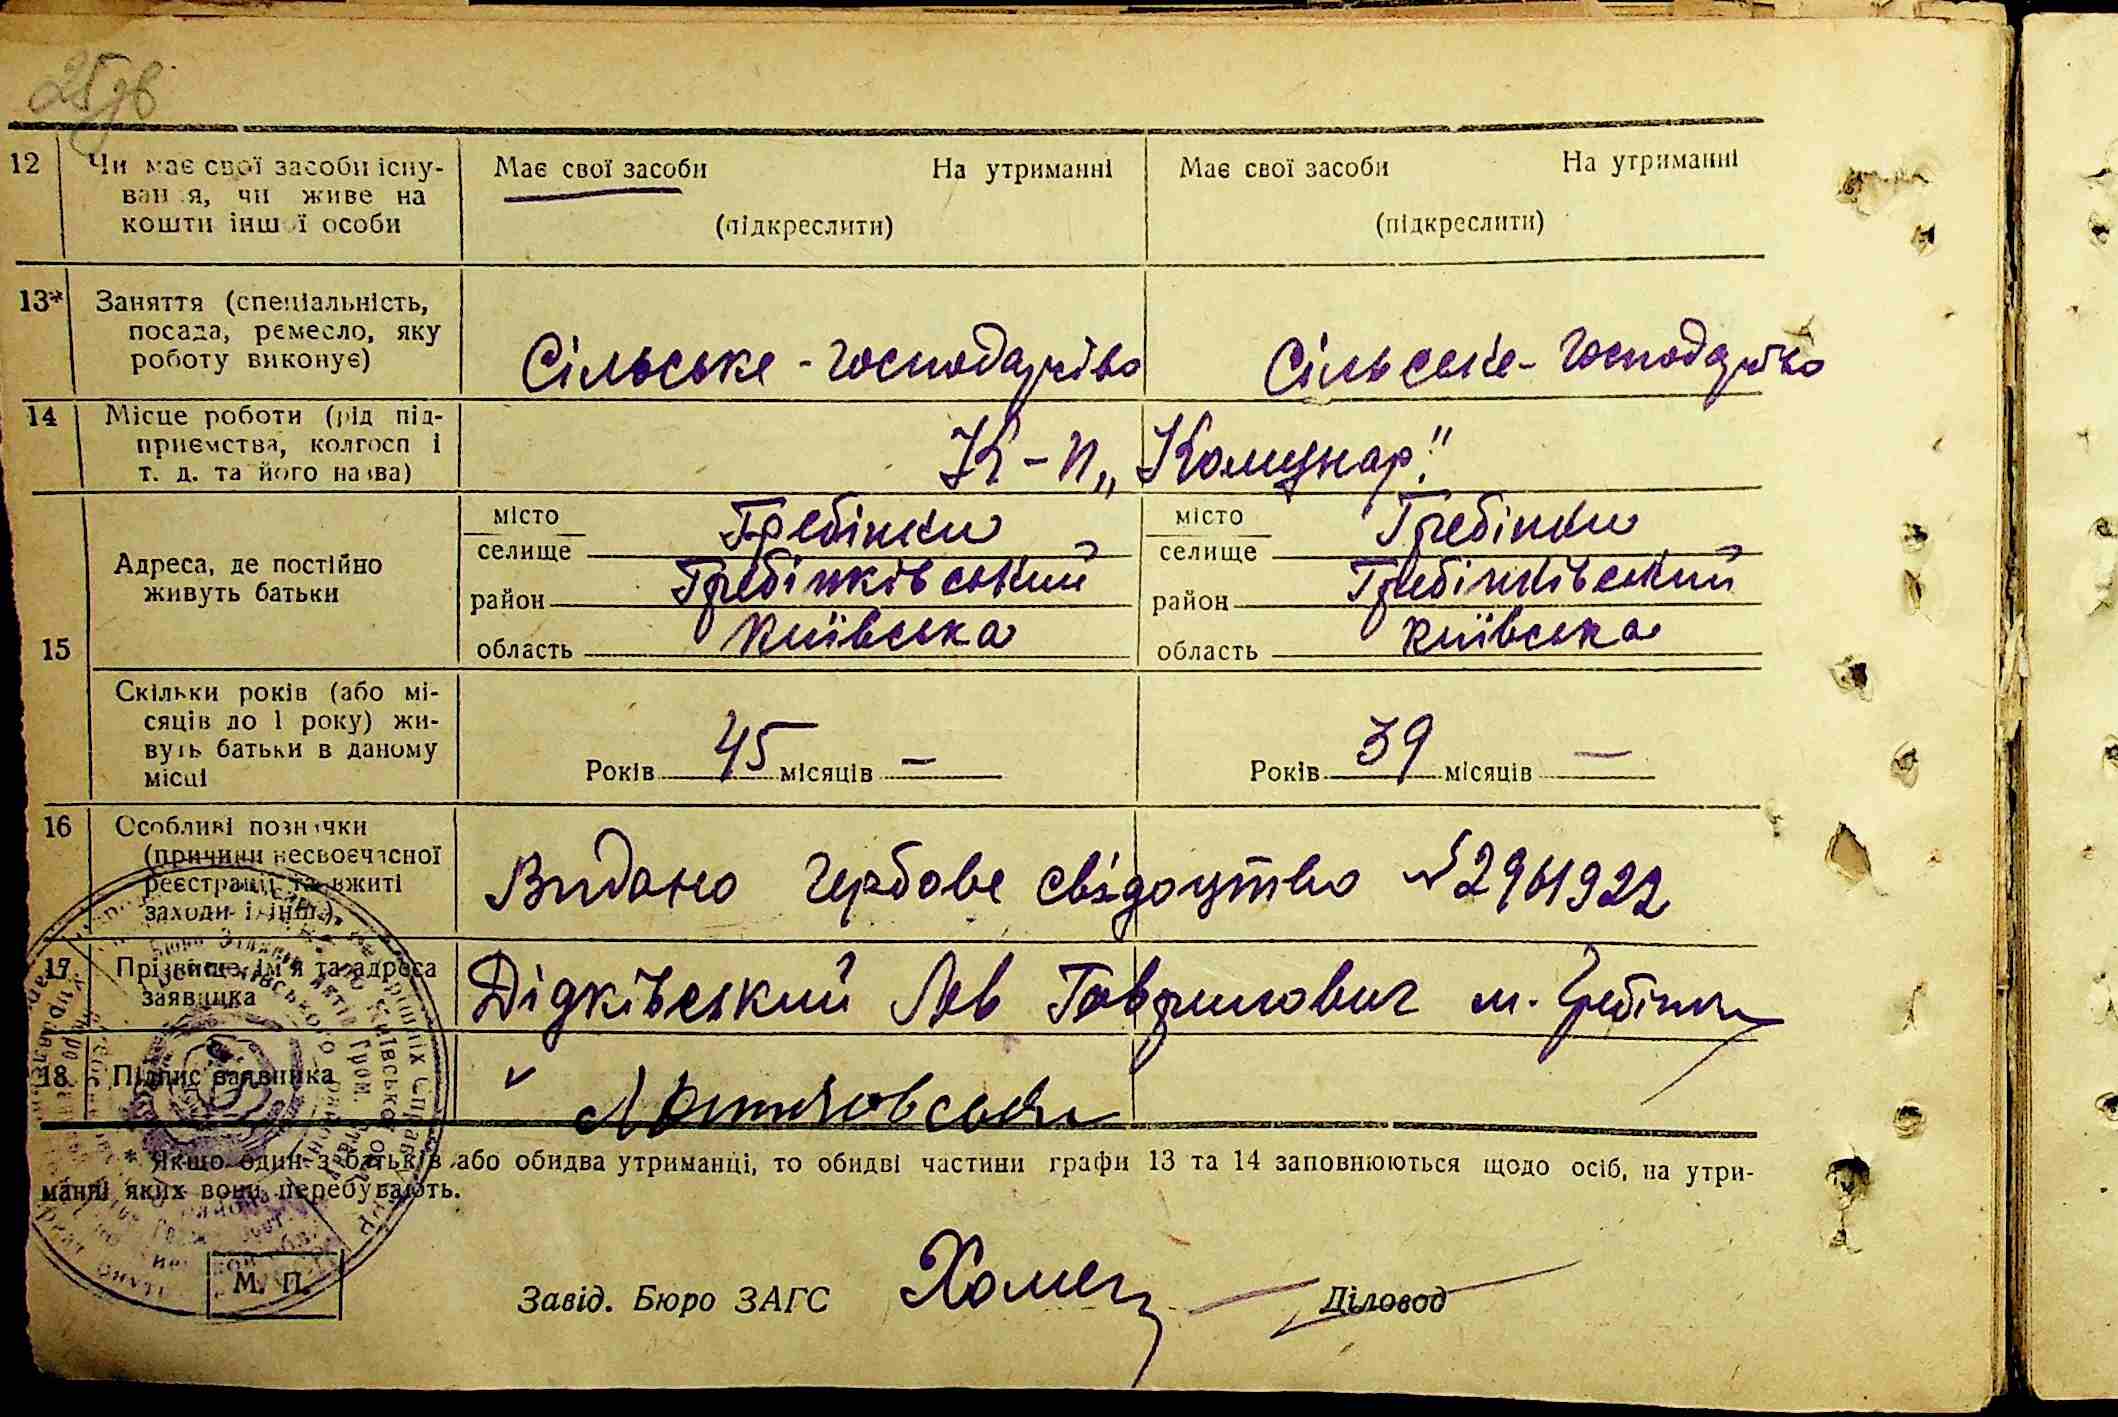 12 Чи має свої засоби існу- Має свої засоби На утриманні Має свої засоби На утриманні
вання, чи живе на
кошти іншої особи (підкреслити) (підкреслити)
13* Заняття (спеціальність,
посада, ремесло, яку
роботу виконує) Сільське-господарство Сільське-господарство
14 Місце роботи (рід під-
приємства, колгосп і К-п „Комунар"
т. д. та його назва)
15 Адреса, де постійно
живуть батьки
місто Гребінки місто Гребінки
селище селище
район Гребінківський район Гребінківський
область Київська область Київська
Скільки років (або мі-
сяців до 1 року) жи-
вуть батьки в даному
місці
Років 45 місяців — Років 39 місяців —
16 Особливі позначки
(причини несвоєчасної
реєстрації та вжиті
заходи і інш.)
Видано гербове свідоцтво
17 Прізвище, ім'я та адреса
заявника
Дідківський Лев Гаврилович м. Гребінки
18 Підпис заявника
* Якщо один з батьків або обидва утриманці, то обидві частини графи 13 та 14 заповнюються щодо осіб, на утри-
манні яких вони перебувають.
М. П.
Завід. Бюро ЗАГС Хомец Діловод